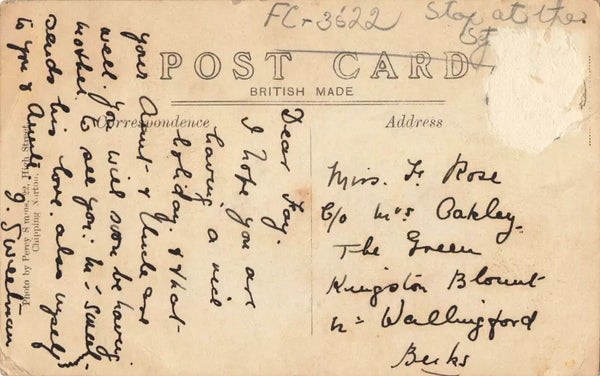 FC-3622
Stop at the
POST CARD
BRITISH MADE
Correspondence
Address
Dear Fay.
I hope you are
having a nice
holiday. & that
your Aunt & Uncle are
well. you will soon be having
mother to see you. Mr Sweet-
sends his love. also myself
to you & Auntie
J. Sweetman
Miss. F. Rose
C/o Mrs Oakley.
The Green
Kingston Blount
Nr Wallingford
Berks
Photo by Percy Simms, 22, High Street
Chipping Norton.